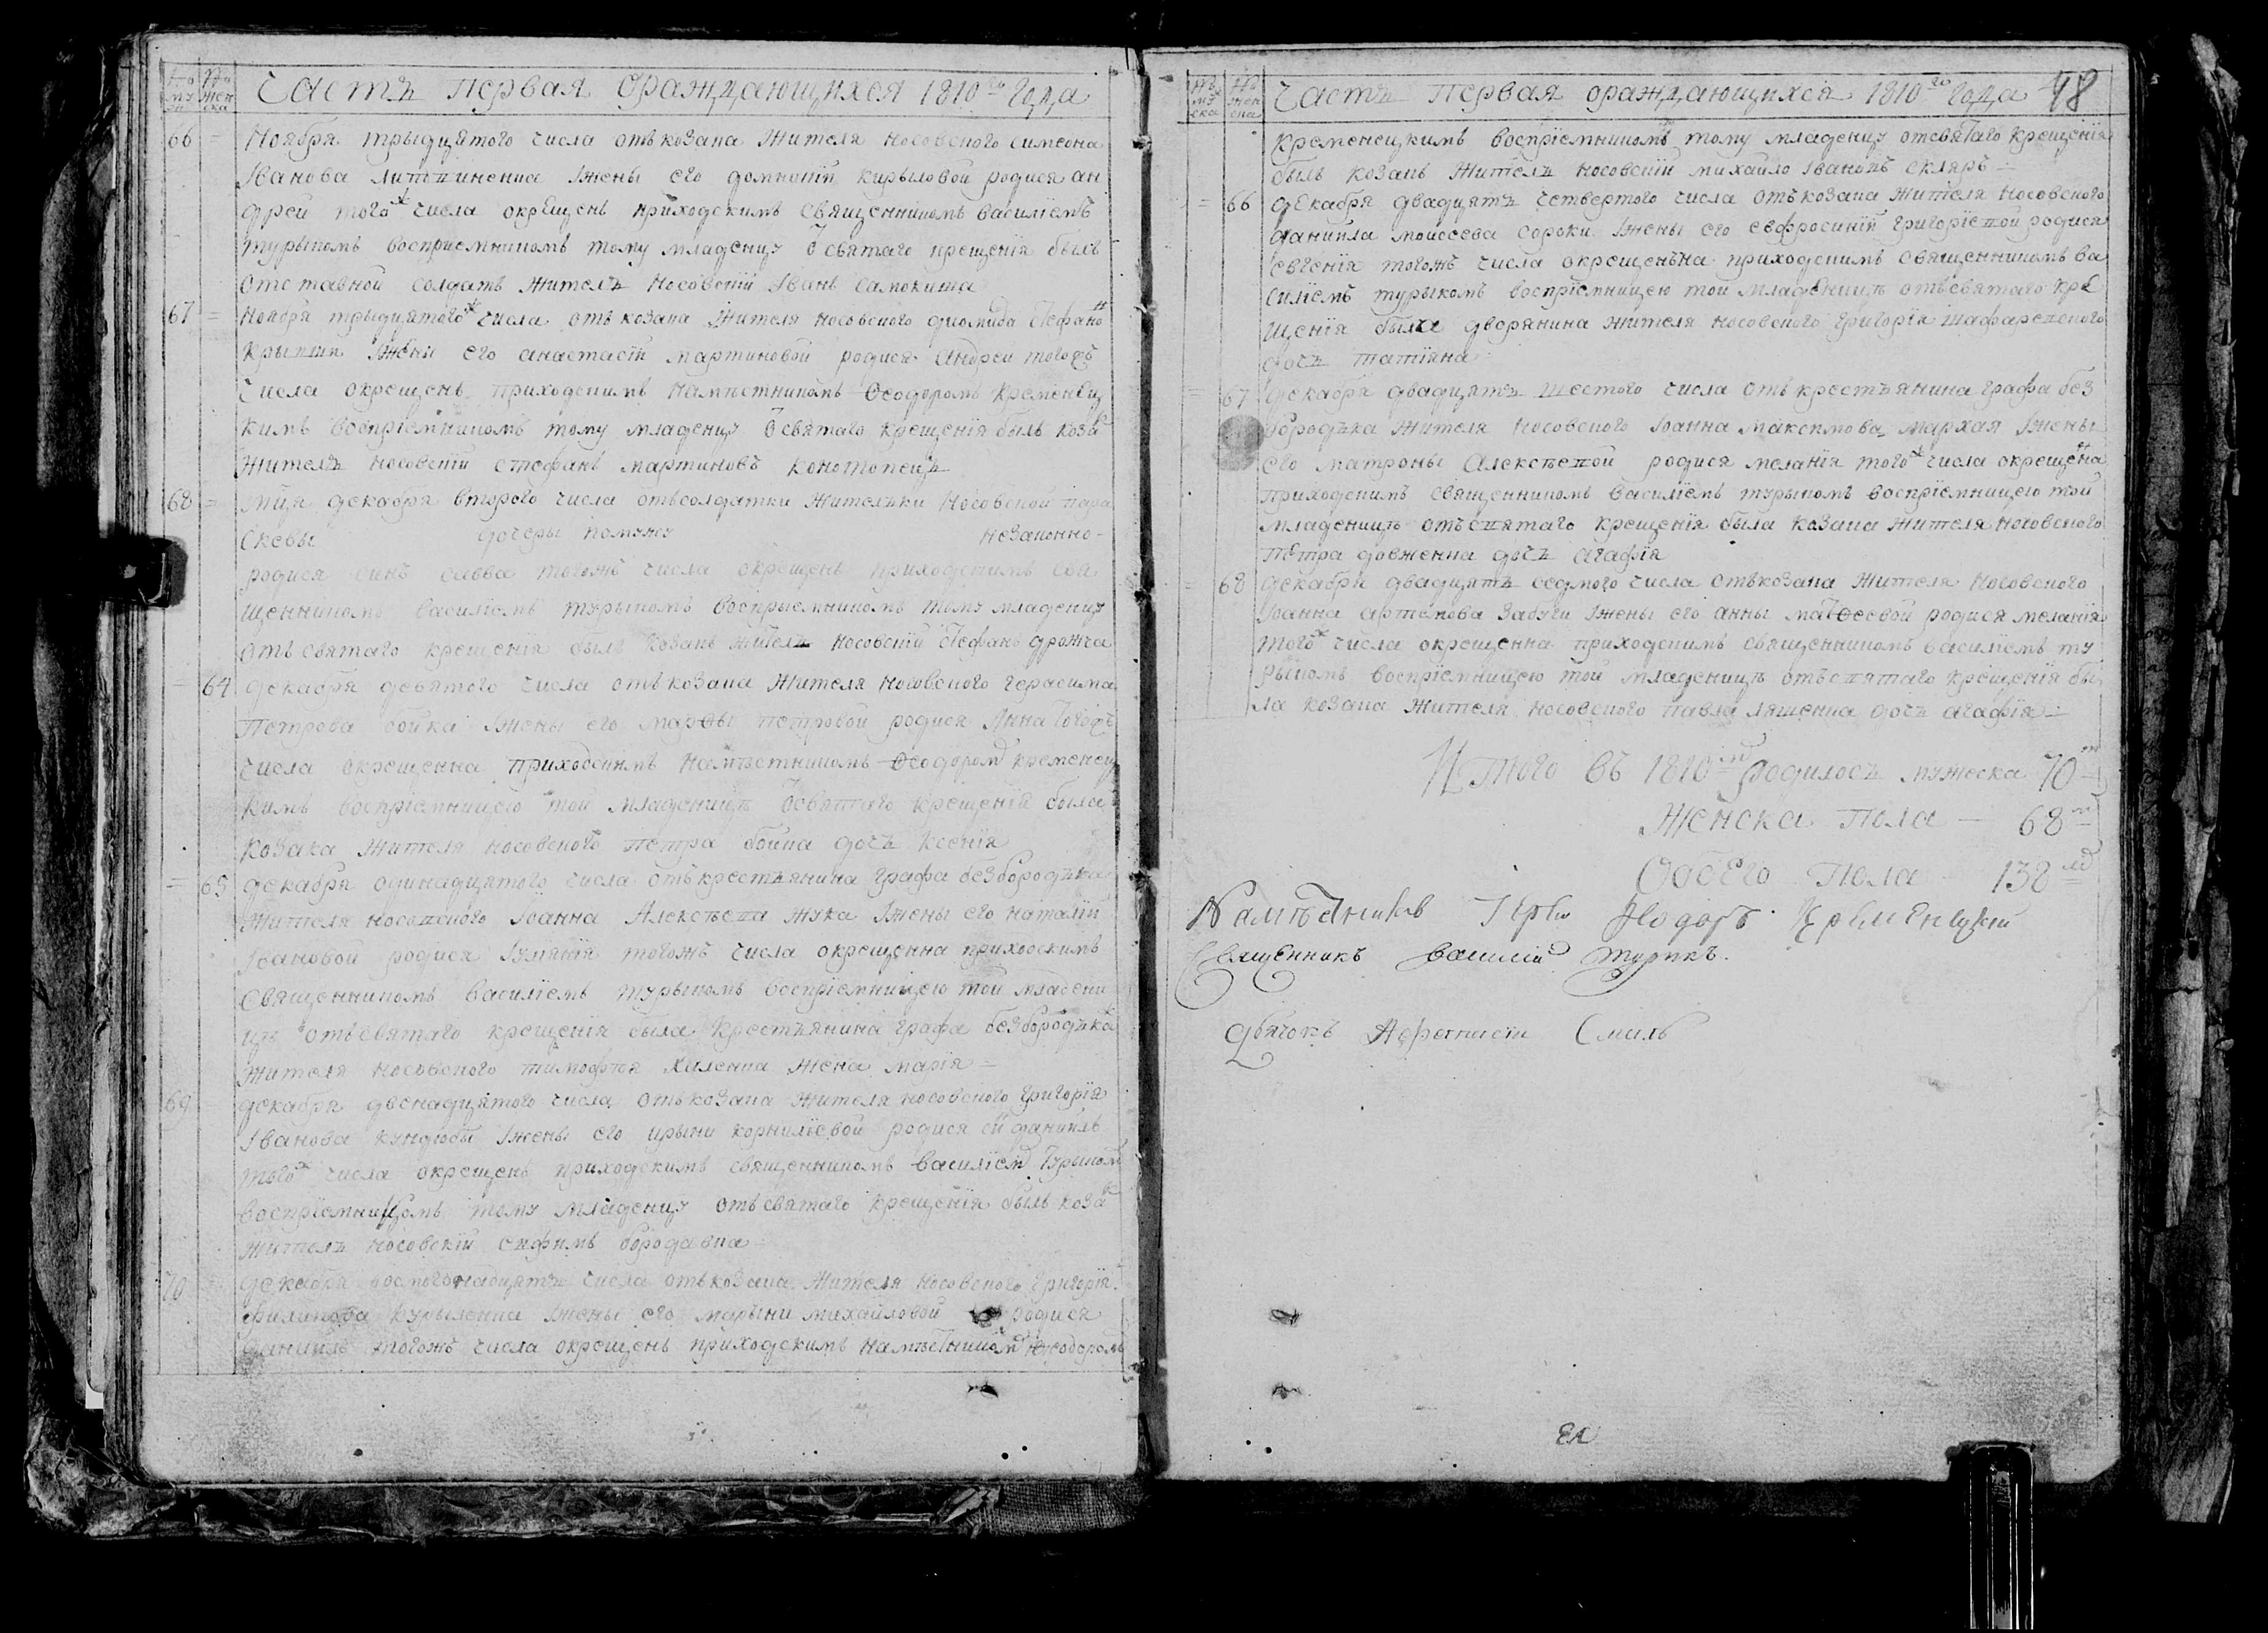 Но му жи Но жен ска Часть первая ораждающихся 1810го Года
66 = Ноября трыдцятого числа отъ козака жителя носовского симеона
Іванова литвиненка Iжены его домникіи кирыловой родися ан
дрей того ж числа окрещенъ приходскимъ священникомъ василіемъ
турыкомъ восприемникомъ тому младенцу ѿ святаго крещенія былъ
отставной солдатъ жителъ носовскій Іванъ самокиша
67 = Ноября трыдцятого ж числа отъ козака жителя носовского диомида стефано в
Iжены его анастасіи мартиновой родися андреи тогожъ
числа окрещенъ приходскимъ намѣстникомъ Ѳеодоромъ кременец
кимъ восприемникомъ тому младенцу ѿ святаго крещенія былъ коза к
жителъ носовскій стефанъ мартиновъ конотопецъ
68 = мця декабря второго числа отъ солдатки жителъки носовской пара
скевы дочеры по мужу незаконно-
родися синъ савва тогожъ числа окрещенъ приходскимъ свя
щенникомъ василіемъ турыкомъ воспрыемникомъ тому младенцу
отъ святаго крещенія былъ козакъ жителъ носовскій стефанъ дрожча
= 64 декабря девятого числа отъ козака жителя носовского герасима
петрова бойка Iжены его марѳы петровой родися Анна тогожъ
числа окрещенна приходскимъ намѣстникомъ Ѳеодором кременец
кимъ восприемницею той младеницѣ ѿ святаго крещенія была
козака жителя носовского петра бойка дочъ ксенія
= 65 декабря одинадцятого числа отъ крестъянина графа безбородъка
жителя носовского Іоанна Алексѣева жука Iжены его наталіи
Івановой родися Іуліянія тогожъ числа окрещенна приходскимъ
священникомъ василіемъ турыкомъ восприемницею той младени
цѣ отъ святаго крещенія была крестъянина графа безбородъка
жителя носовского тимофѣя халенка жена марія =
69 декабря двенадцятого числа отъ козака жителя носовского григорія
Іванова кундюбы Iжены его ирыни корниліевой родися сй даниилъ
того ж числа окрещенъ приходскимъ священникомъ василіем турыком
воспріемникомъ тому младенцу отъ святаго крещенія былъ коза к
жителъ носовскій ефимъ бородавка
70 декабря восмогонадцять числа отъ козака жителя носовского григорія
филипова курыленка Iжены его марыни михайловой родися
даниилъ тогожъ числа окрещенъ приходскимъ намѣстником Ѳеодоромъ
Но му жеска Но жен ска Часть первая ораждающихся 1810го года 48
кременецкимъ воспріемникомъ тому младенцу от святаго крещенія
былъ козакъ жителъ носовскій михайло Івановъ скляръ =
= 66 декабря двадцять четвертого числа отъ козака жителя носовского
даниила моисеева сороки Iжены его евфросиніи григоріевой родися
евгенія тогожъ числа окрещенъна приходскимъ священникомъ ва
силіемъ турыкомъ воспріемницею той младеницѣ отъ святаго кре
щенія была дворянина жителя носовского григорія шафаревского
дочъ татіяна
= 67 декабря двадцять шестого числа отъ крестъянина графа без
бородъка жителя носовского Іоанна максимова мархая Iжены
его матроны Алексѣевой родися меланія того ж числа окрещен на
приходскимъ священникомъ василіемъ турыкомъ воспріемницею той
младеницѣ отъ святаго крещенія была козака жителя носовского
петра довженка дочъ агафія
= 68 декабря двадцять седмого числа отъ козака жителя носовского
Іоанна артемова забуги Iжены его анны матѳеевой родися меланія
того ж числа окрещенна приходскимъ священникомъ василіемъ ту
рыкомъ воспріемницею той младеницѣ отъ святаго крещенія бы
ла козака жителя носовского павла ляшенка дочъ агафія =
Итого въ 1810м родилось мужеска 70
Женска пола - 68
Обоего Пола - 138
Намѣстникъ Іерей Ѳеодоръ Кременецкий
Священникъ Василій Турикъ.
Дьячокъ Смаль